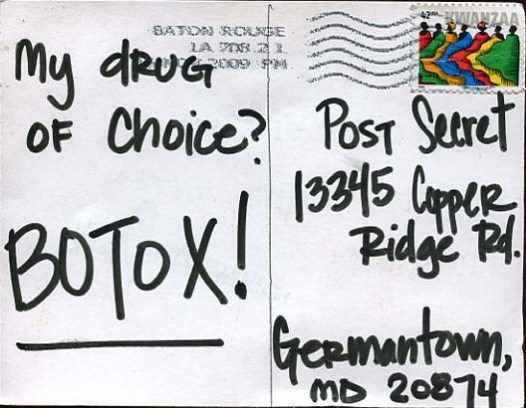 My dRUG
OF Choice?
BOTOX!
BATON ROUGE
LA 708 2 1
2009 PM
42 KWANZAA
Post Secret
13345 Copper
Ridge Rd.
Germantown,
MD 20874